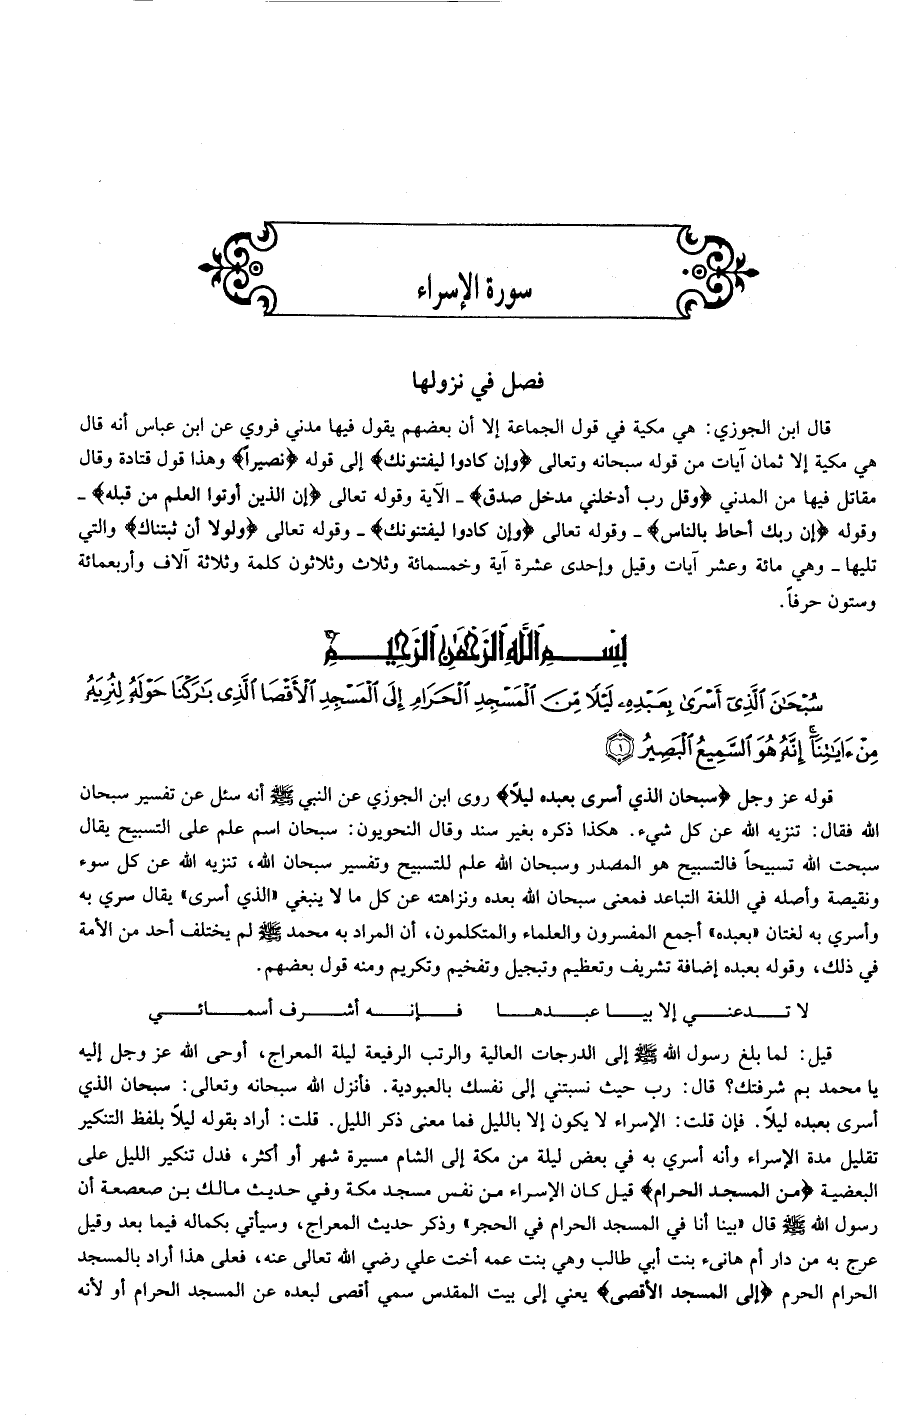 سورة الإسراء
فصل في نزولها
قال ابن الجوزي: هي مكية في قول الجماعة إلا أن بعضهم يقول فيها مدني فروي عن ابن عباس أنه قال
هي مكية إلا ثمان آيات من قوله سبحانه وتعالى ﴿وإن كادوا ليفتنونك﴾ إلى قوله ﴿نصيراً﴾ وهذا قول قتادة وقال
مقاتل فيها من المدني ﴿وقل رب أدخلني مدخل صدق﴾ ـ الآية وقوله تعالى ﴿إن الذين أوتوا العلم من قبله﴾ ـ
وقوله ﴿إن ربك أحاط بالناس﴾ ـ وقوله تعالى ﴿وإن كادوا ليفتنونك﴾ ـ وقوله تعالى ﴿ولولا أن ثبتناك﴾ والتي
تليها ـ وهي مائة وعشر آيات وقيل وإحدى عشرة آية وخمسمائة وثلاث وثلاثون كلمة وثلاثة آلاف وأربعمائة
وستون حرفاً.
بِسْمِ اللَّهِ الرَّحْمَٰنِ الرَّحِيمِ
سُبْحَانَ الَّذِي أَسْرَىٰ بِعَبْدِهِ لَيْلًا مِنَ الْمَسْجِدِ الْحَرَامِ إِلَى الْمَسْجِدِ الْأَقْصَا الَّذِي بَارَكْنَا حَوْلَهُ لِنُرِيَهُ
مِنْ ءَايَاتِنَا إِنَّهُ هُوَ السَّمِيعُ الْبَصِيرُ ﴿١﴾
قوله عز وجل ﴿سبحان الذي أسرى بعبده ليلاً﴾ روى ابن الجوزي عن النبي ﷺ أنه سئل عن تفسير سبحان
الله فقال: تنزيه الله عن كل شيء. هكذا ذكره بغير سند وقال النحويون: سبحان اسم علم على التسبيح يقال
سبحت الله تسبيحاً فالتسبيح هو المصدر وسبحان الله علم للتسبيح وتفسير سبحان الله، تنزيه الله عن كل سوء
ونقيصة وأصله في اللغة التباعد فمعنى سبحان الله بعده ونزاهته عن كل ما لا ينبغي «الذي أسرى» يقال سري به
وأسري به لغتان «بعبده» أجمع المفسرون والعلماء والمتكلمون، أن المراد به محمد ﷺ لم يختلف أحد من الأمة
في ذلك، وقوله بعبده إضافة تشريف وتعظيم وتبجيل وتفخيم وتكريم ومنه قول بعضهم.
لا تـدعنـي إلا بيـا عبـدهـا فـإنـه أشـرف أسمـائـي
قيل: لما بلغ رسول الله ﷺ إلى الدرجات العالية والرتب الرفيعة ليلة المعراج، أوحى الله عز وجل إليه
يا محمد بم شرفتك؟ قال: رب حيث نسبتني إلى نفسك بالعبودية. فأنزل الله سبحانه وتعالى: سبحان الذي
أسرى بعبده ليلاً. فإن قلت: الإسراء لا يكون إلا بالليل فما معنى ذكر الليل. قلت: أراد بقوله ليلاً بلفظ التنكير
تقليل مدة الإسراء وأنه أسري به في بعض ليلة من مكة إلى الشام مسيرة شهر أو أكثر، فدل تنكير الليل على
البعضية ﴿من المسجد الحرام﴾ قيل كان الإسراء من نفس مسجد مكة وفي حديث مالك بن صعصعة أن
رسول الله ﷺ قال «بينا أنا في المسجد الحرام في الحجر» وذكر حديث المعراج، وسيأتي بكماله فيما بعد وقيل
عرج به من دار أم هانىء بنت أبي طالب وهي بنت عمه أخت علي رضي الله تعالى عنه، فعلى هذا أراد بالمسجد
الحرام الحرم ﴿إلى المسجد الأقصى﴾ يعني إلى بيت المقدس سمي أقصى لبعده عن المسجد الحرام أو لأنه